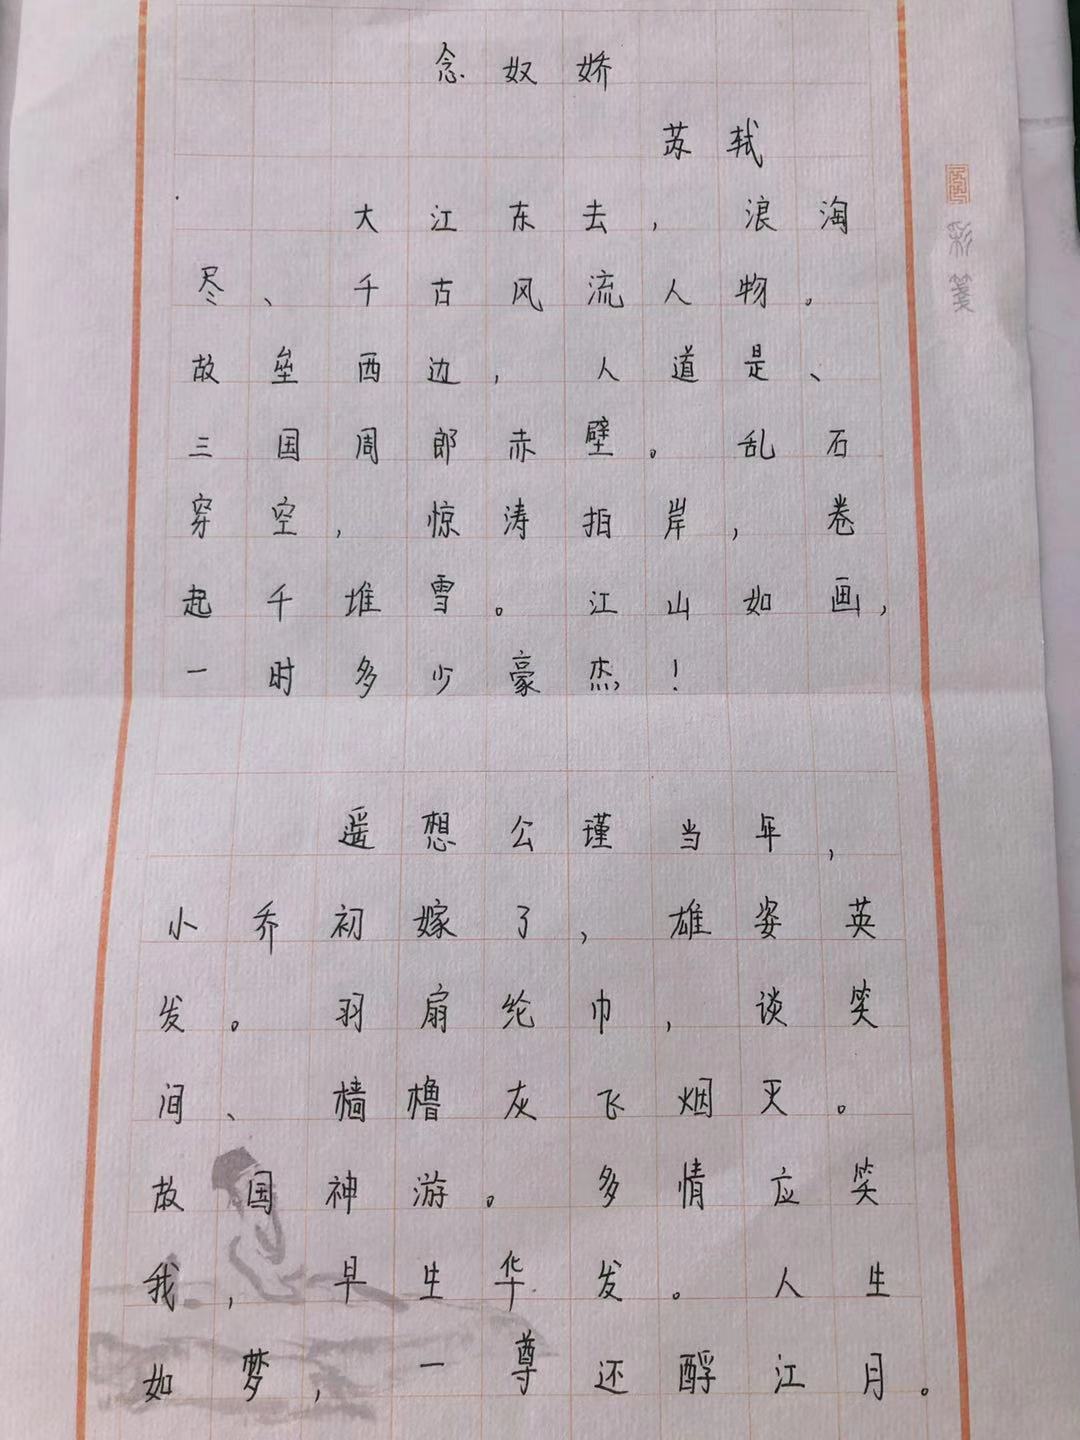 念奴娇
苏轼
大江东去，浪淘
尽、千古风流人物。
故垒西边，人道是、
三国周郎赤壁。乱石
穿空，惊涛拍岸，卷
起千堆雪。江山如画，
一时多少豪杰！
遥想公瑾当年，
小乔初嫁了，雄姿英
发。羽扇纶巾，谈笑
间、樯橹灰飞烟灭。
故国神游。多情应笑
我，早生华发。人生
如梦，一尊还酹江月。
彩笺